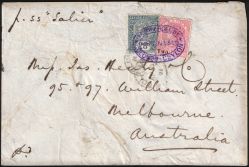 p. ss "Salier"
Mess. Jas. & Co
95 & 97. William Street
Melbourne.
Australia